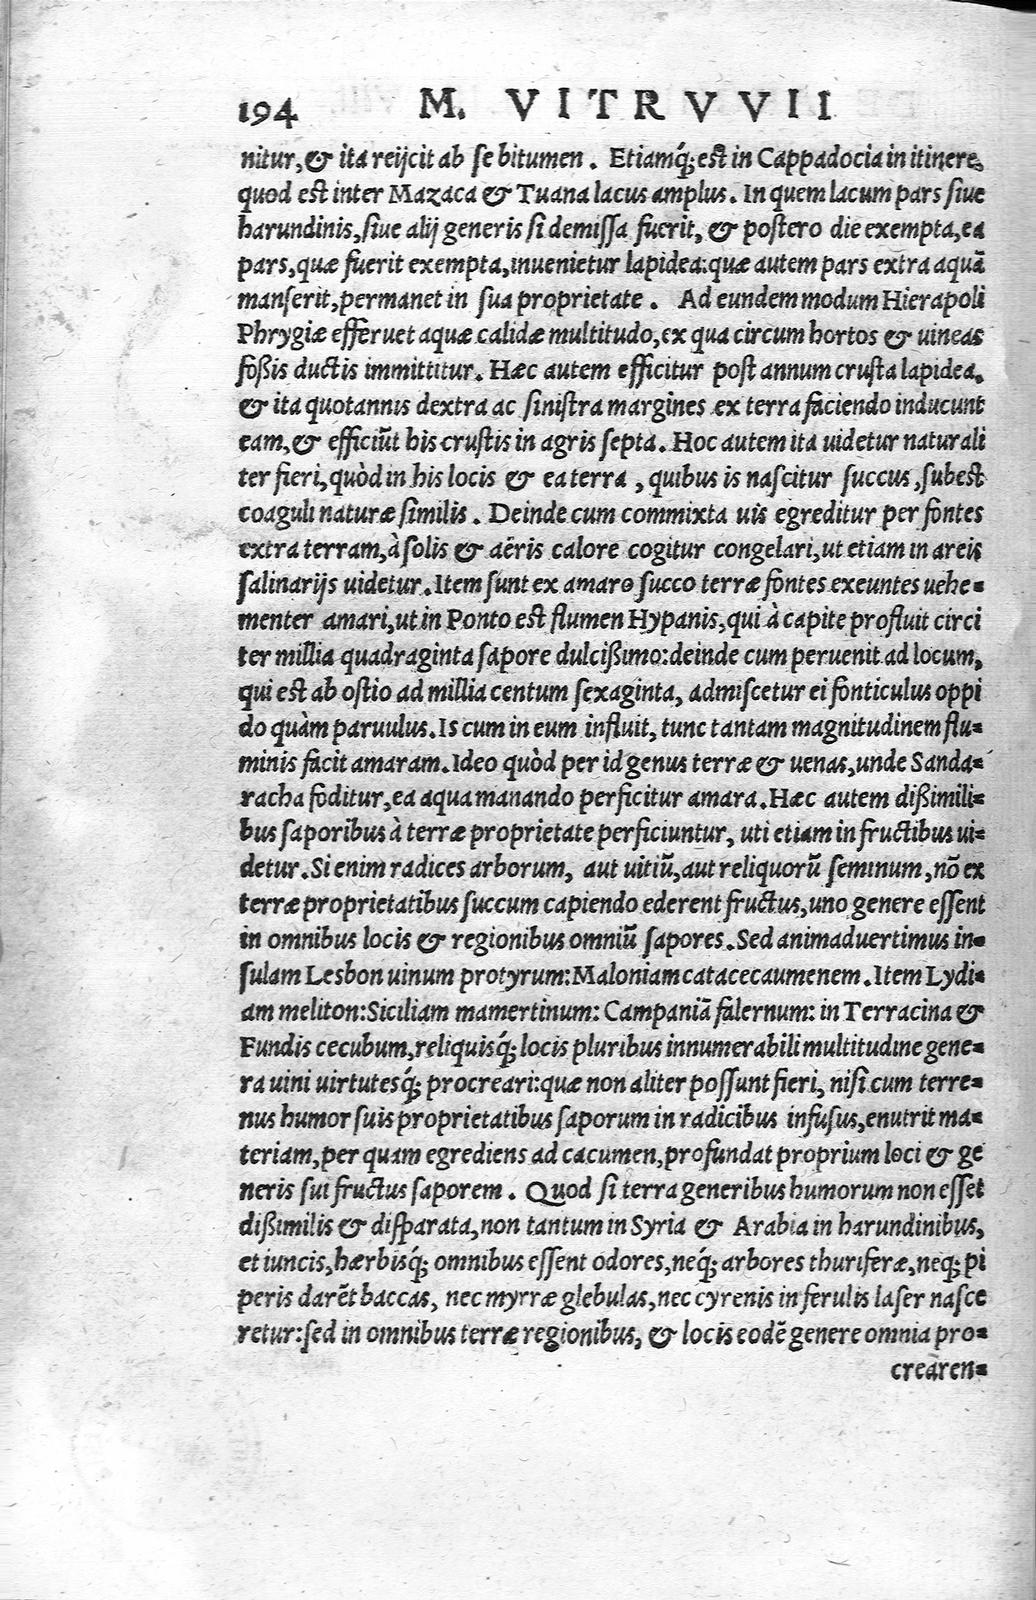 194 M. VITRVVII
nitur, & ita reijcit ab se bitumen. Etiamq́; est in Cappadocia in itinere,
quod est inter Mazaca & Tuana lacus amplus. In quem lacum pars siue
harundinis, siue alij generis si demissa fuerit, & postero die exempta, ea
pars, quæ fuerit exempta, inuenietur lapidea: quæ autem pars extra aquā
manserit, permanet in sua proprietate. Ad eundem modum Hierapoli
Phrygiæ efferuet aquæ calidæ multitudo, ex qua circum hortos & uineas
foßis ductis immittitur. Hæc autem efficitur post annum crusta lapidea,
& ita quotannis dextra ac sinistra margines ex terra faciendo inducunt
eam, & efficiūt bis crustis in agris septa. Hoc autem ita uidetur naturali
ter fieri, quòd in his locis & ea terra, quibus is nascitur succus, subest
coaguli naturæ similis. Deinde cum commixta uis egreditur per fontes
extra terram, à solis & aëris calore cogitur congelari, ut etiam in areis
salinarijs uidetur. Item sunt ex amaro succo terræ fontes exeuntes uehe=
menter amari, ut in Ponto est flumen Hypanis, qui à capite profluit circi
ter millia quadraginta sapore dulcißimo: deinde cum peruenit ad locum,
qui est ab ostio ad millia centum sexaginta, admiscetur ei fonticulus oppi
do quàm paruulus. Is cum in eum influit, tunc tantam magnitudinem flu=
minis facit amaram. Ideo quòd per id genus terræ & uenas, unde Sanda=
racha foditur, ea aqua manando perficitur amara. Hæc autem dißimili=
bus saporibus à terræ proprietate perficiuntur, uti etiam in fructibus ui=
detur. Si enim radices arborum, aut uitiū, aut reliquorū seminum, nō ex
terræ proprietatibus succum capiendo ederent fructus, uno genere essent
in omnibus locis & regionibus omniū sapores. Sed animaduertimus in=
sulam Lesbon uinum protyrum: Maloniam catacecaumenem. Item Lydi=
am meliton: Siciliam mamertinum: Campaniā falernum: in Terracina &
Fundis cecubum, reliquisq́; locis pluribus innumerabili multitudine gene=
ra uini uirtutesq́; procreari: quæ non aliter possunt fieri, nisi cum terre=
nus humor suis proprietatibus saporum in radicibus infusus, enutrit ma=
teriam, per quam egrediens ad cacumen, profundat proprium loci & ge
neris sui fructus saporem. Quod si terra generibus humorum non esset
dißimilis & disparata, non tantum in Syria & Arabia in harundinibus,
et iuncis, hærbisq́; omnibus essent odores, neq́; arbores thuriferæ, neq; pi
peris darēt baccas, nec myrræ glebulas, nec cyrenis in ferulis laser nasce
retur: sed in omnibus terræ regionibus, & locis eodē genere omnia pro=
crearen=